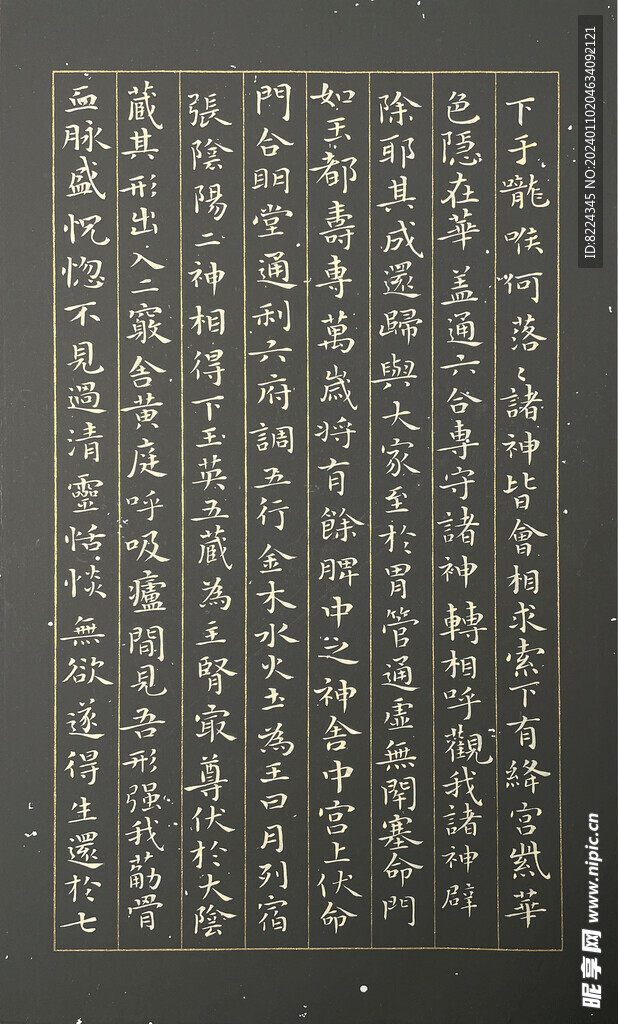 下于嚨喉何落〻諸神皆會相求索下有絳宫紫華
色隱在華盖通六合專守諸神轉相呼觀我諸神辟
除耶其成還歸與大家至於胃管通虛無閇塞命門
如玉都壽專萬歲將有餘脾中之神舍中宫上伏命
門合眀堂通利六府調五行金木水火土為王日月列宿
張陰陽二神相得下玉英五藏為主腎㝡尊伏於大陰
藏其形出入二竅舍黄庭呼吸廬間見吾形强我筋骨
血脉盛怳惚不見過清靈恬惔無欲遂得生還於七
ID:8224345 NO:20240110204634092121
昵享网 www.nipic.cn